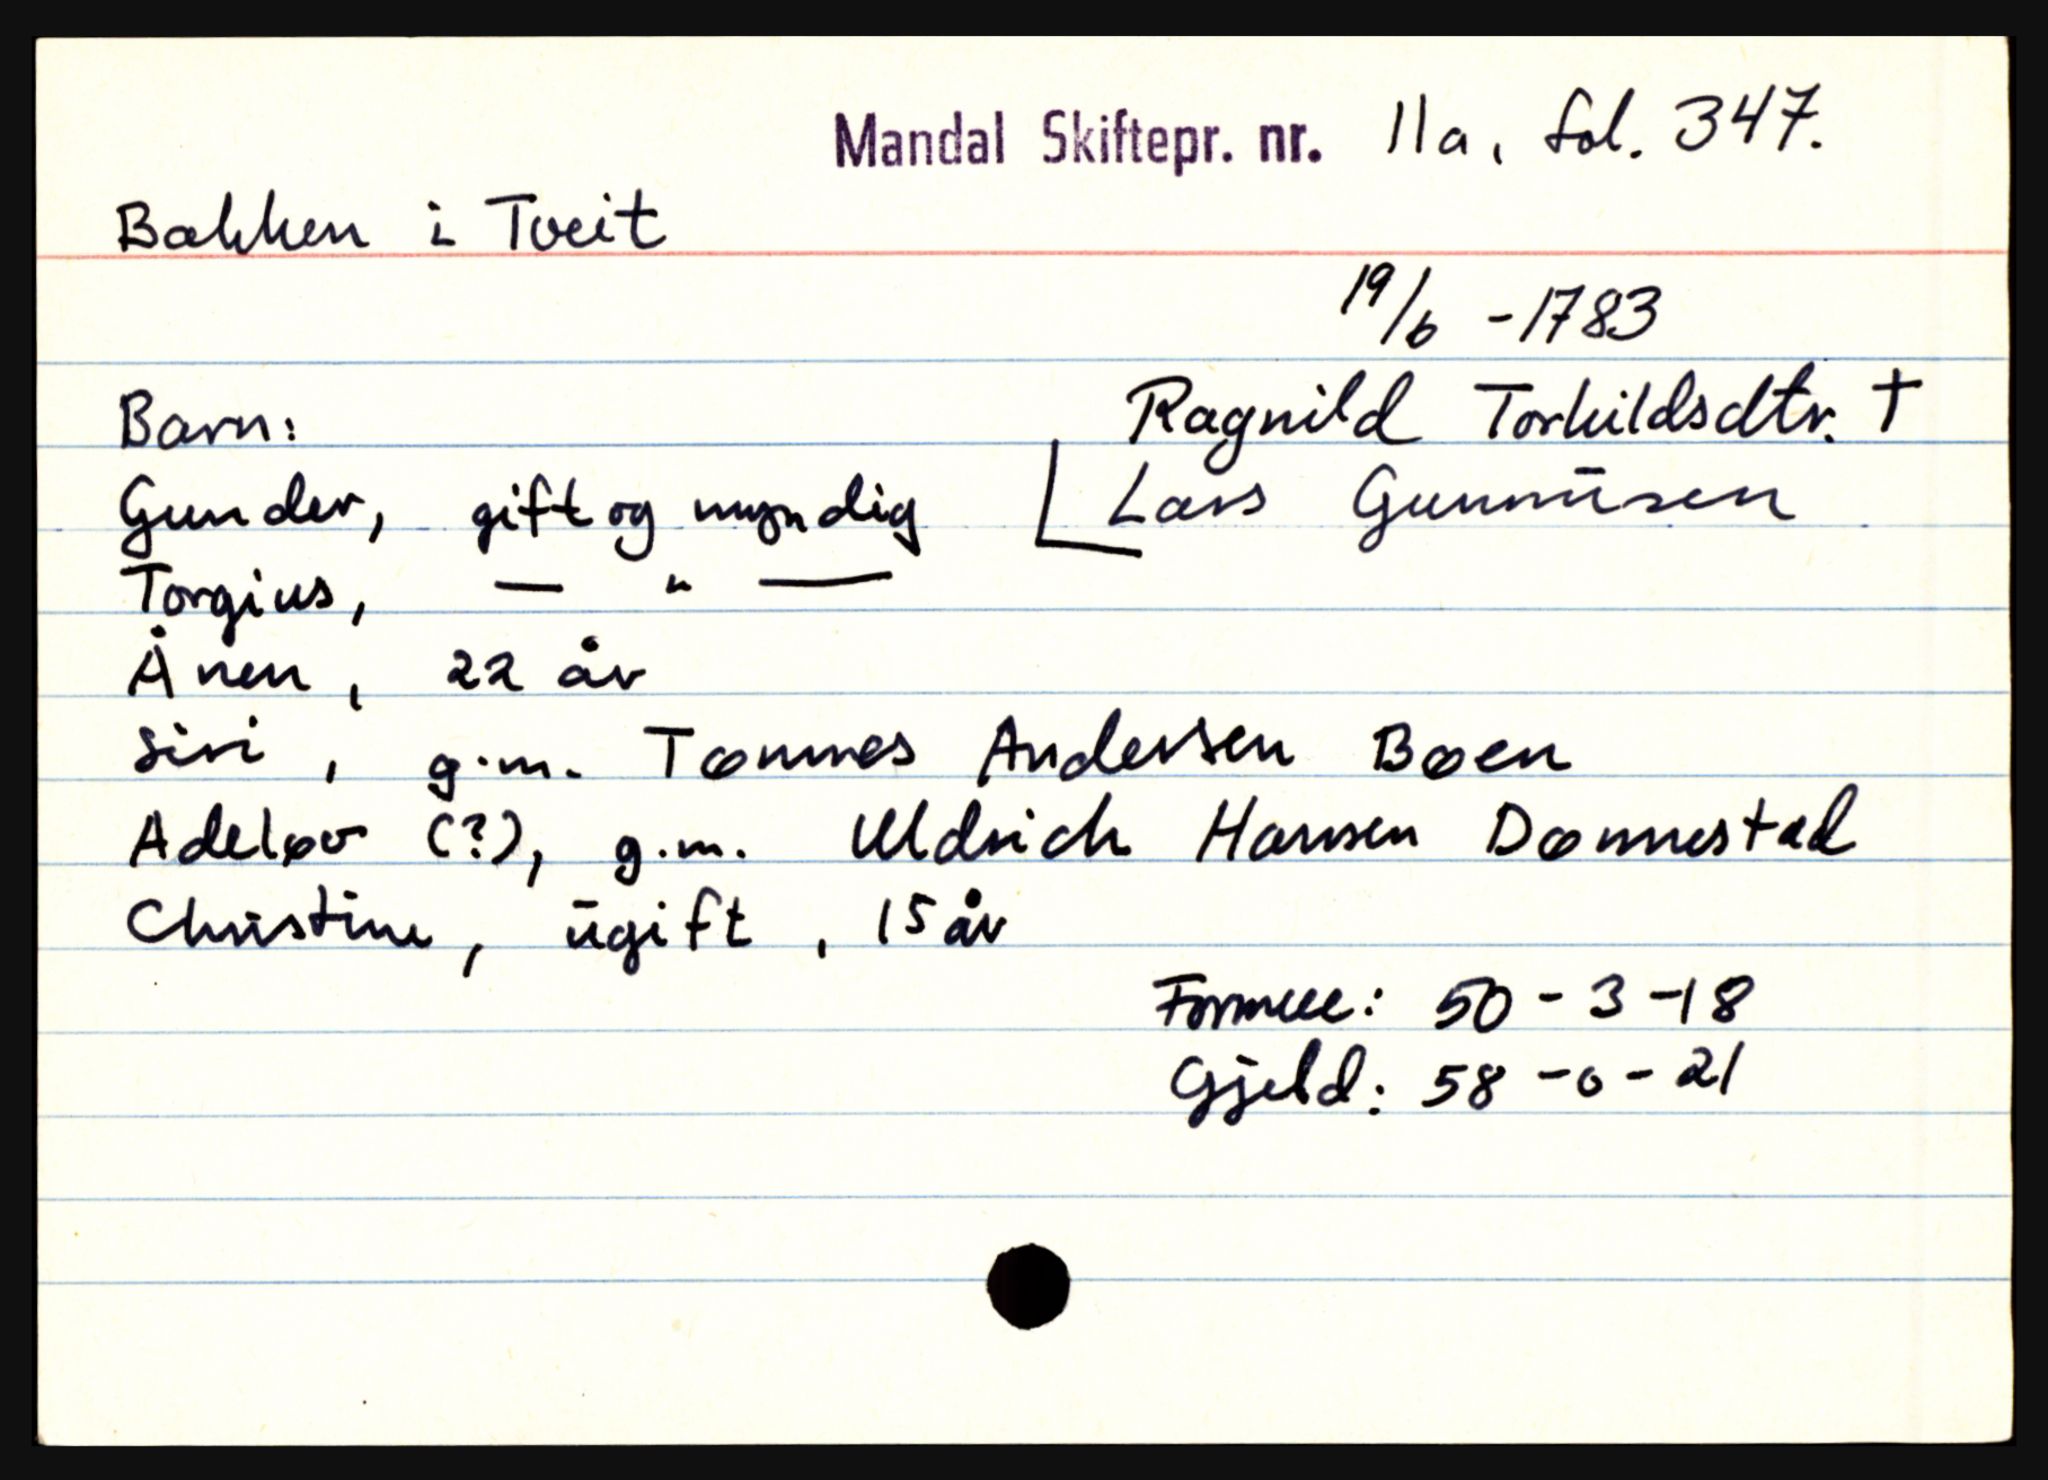 Mandal Skiftepr. nr. 11a, fol. 347.
Bakken i Tveit
19/6 - 1783
Ragnild Torkildsdtr. †
Lars Gunnūsen
Barn:
Gunder, gift og myndig
Torgius, — " —
Ånen, 22 år
Siri, g.m. Tønnes Andersen Boen
Adeløv (?), g.m. Uldrich Hansen Dønnestad
Christine, ūgift, 15 år
Formue: 50 - 3 - 18
Gjeld: 58 - 0 - 21